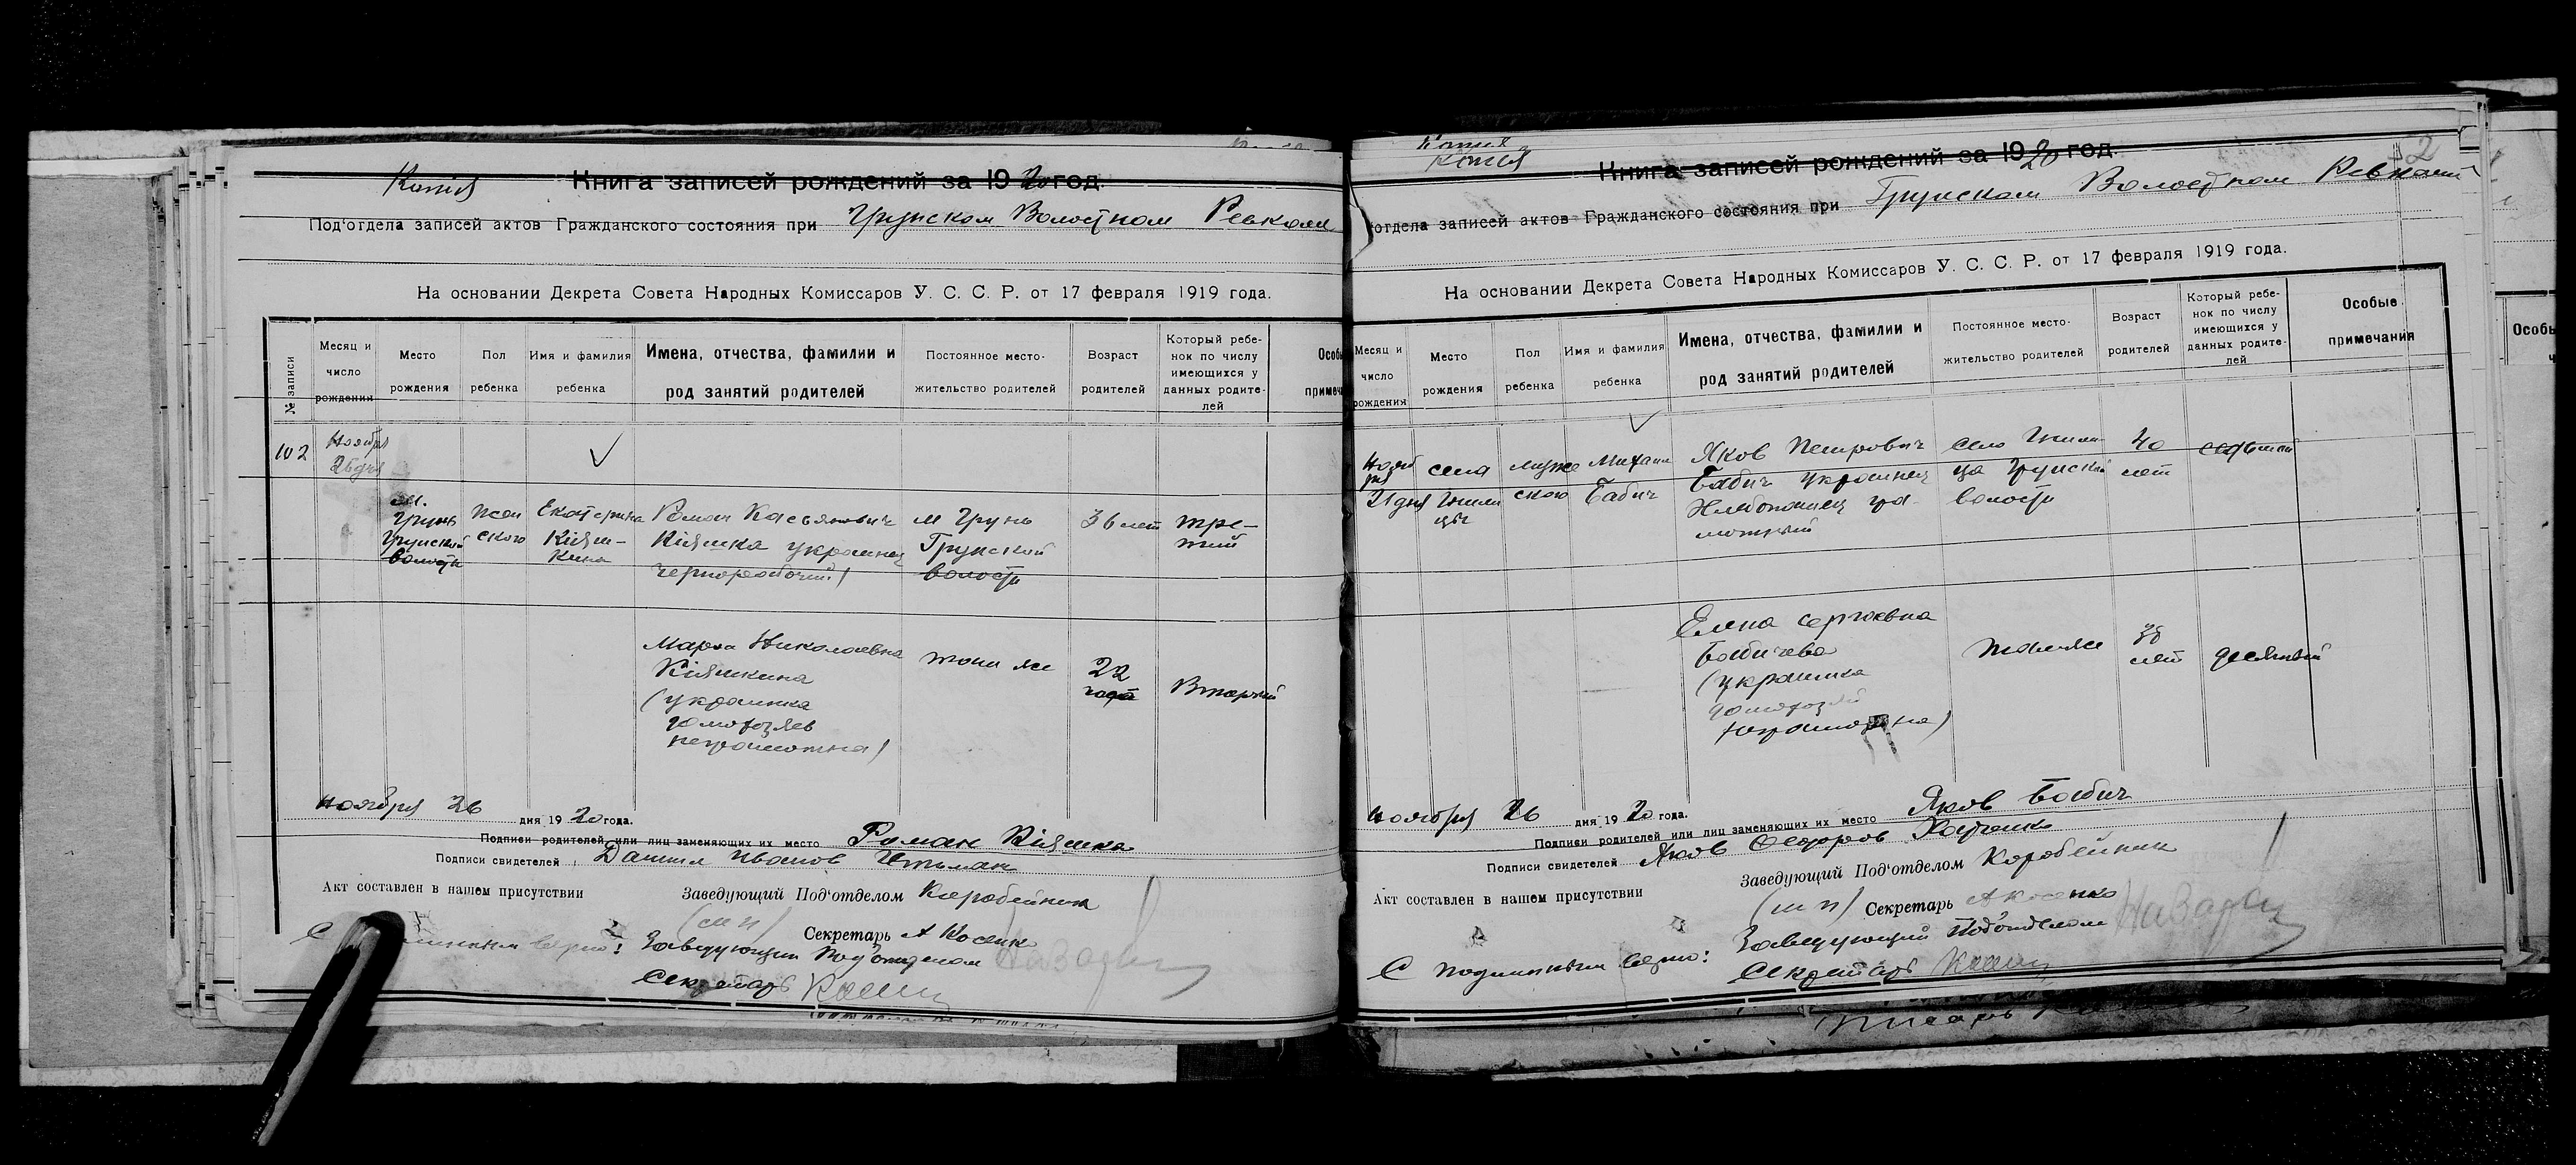 Копия
Книга записей рождений за 1920 год.
Под'отдела записей актов Гражданского состояния при Грунском Волостном Ревкоме
На основании Декрета Совета Народных Комиссаров У. С. С. Р. от 17 февраля 1919 года.
№ записи
Месяц и число рождения
Место рождения
Пол ребенка
Имя и фамилия ребенка
Имена, отчества, фамилии и род занятий родителей
Постоянное место-жительство родителей
Возраст родителей
Который ребе-нок по числу имеющихся у данных родите-лей
Особы
примеч
102
Ноября
26 дня
м.
Грунь
Грунской
волости
жен
ского
Екатерина
Кіяш-
кина
Роман Касьянович
Кіяшка украинец
чернорабочий)
м Грунь
Грунской
волости
36 лет
тре-
тий
Мария Николаевна
Кіяшкина
(украинка
домохозяев
неграмотна)
того же
22
года
Второй
Ноября 26 дня 1920 года.
Подписи родителей или лиц заменяющих их место Роман Кіяшка
Подписи свидетелей Даниил Иванов
Акт составлен в нашем присутствии
Заведующий Под'отделом Коробейник
(м п) Секретарь А Косенко
С верно: Заведующий Под'отделом
Секретарь
Копия
Копия
Книга записей рождений за 1920 год.
2
отдела записей актов Гражданского состояния при Грунском Волостном Ревкоме
На основании Декрета Совета Народных Комиссаров У. С. С. Р. от 17 февраля 1919 года.
Месяц и число рождения
Место рождения
Пол ребенка
Имя и фамилия ребенка
Имена, отчества, фамилии и род занятий родителей
Постоянное место-жительство родителей
Возраст родителей
Который ребе-нок по числу имеющихся у данных родите-лей
Особые примечания
Особы
Нояб
ря
21 дня
села
муже
ского
Михаил
Бабич
Яков Петрович
Бабич украинец
Хлебопашец гра-
мотный
село
Грунской
волости
40
лет
седьмой
Елена Сергіевна
Бабичева
(украинка
домохозяй
неграмотна)
того же
38
лет
десятый
Ноября 26 дня 1920 года.
Подписи родителей или лиц заменяющих их место Яков Бабич
Подписи свидетелей Яков Федоров
Акт составлен в нашем присутствии
Заведующий Под'отделом Коробейник
(м п) Секретарь А Косенко
С подлинным верно: Заведующий Под'отделом
Секретарь